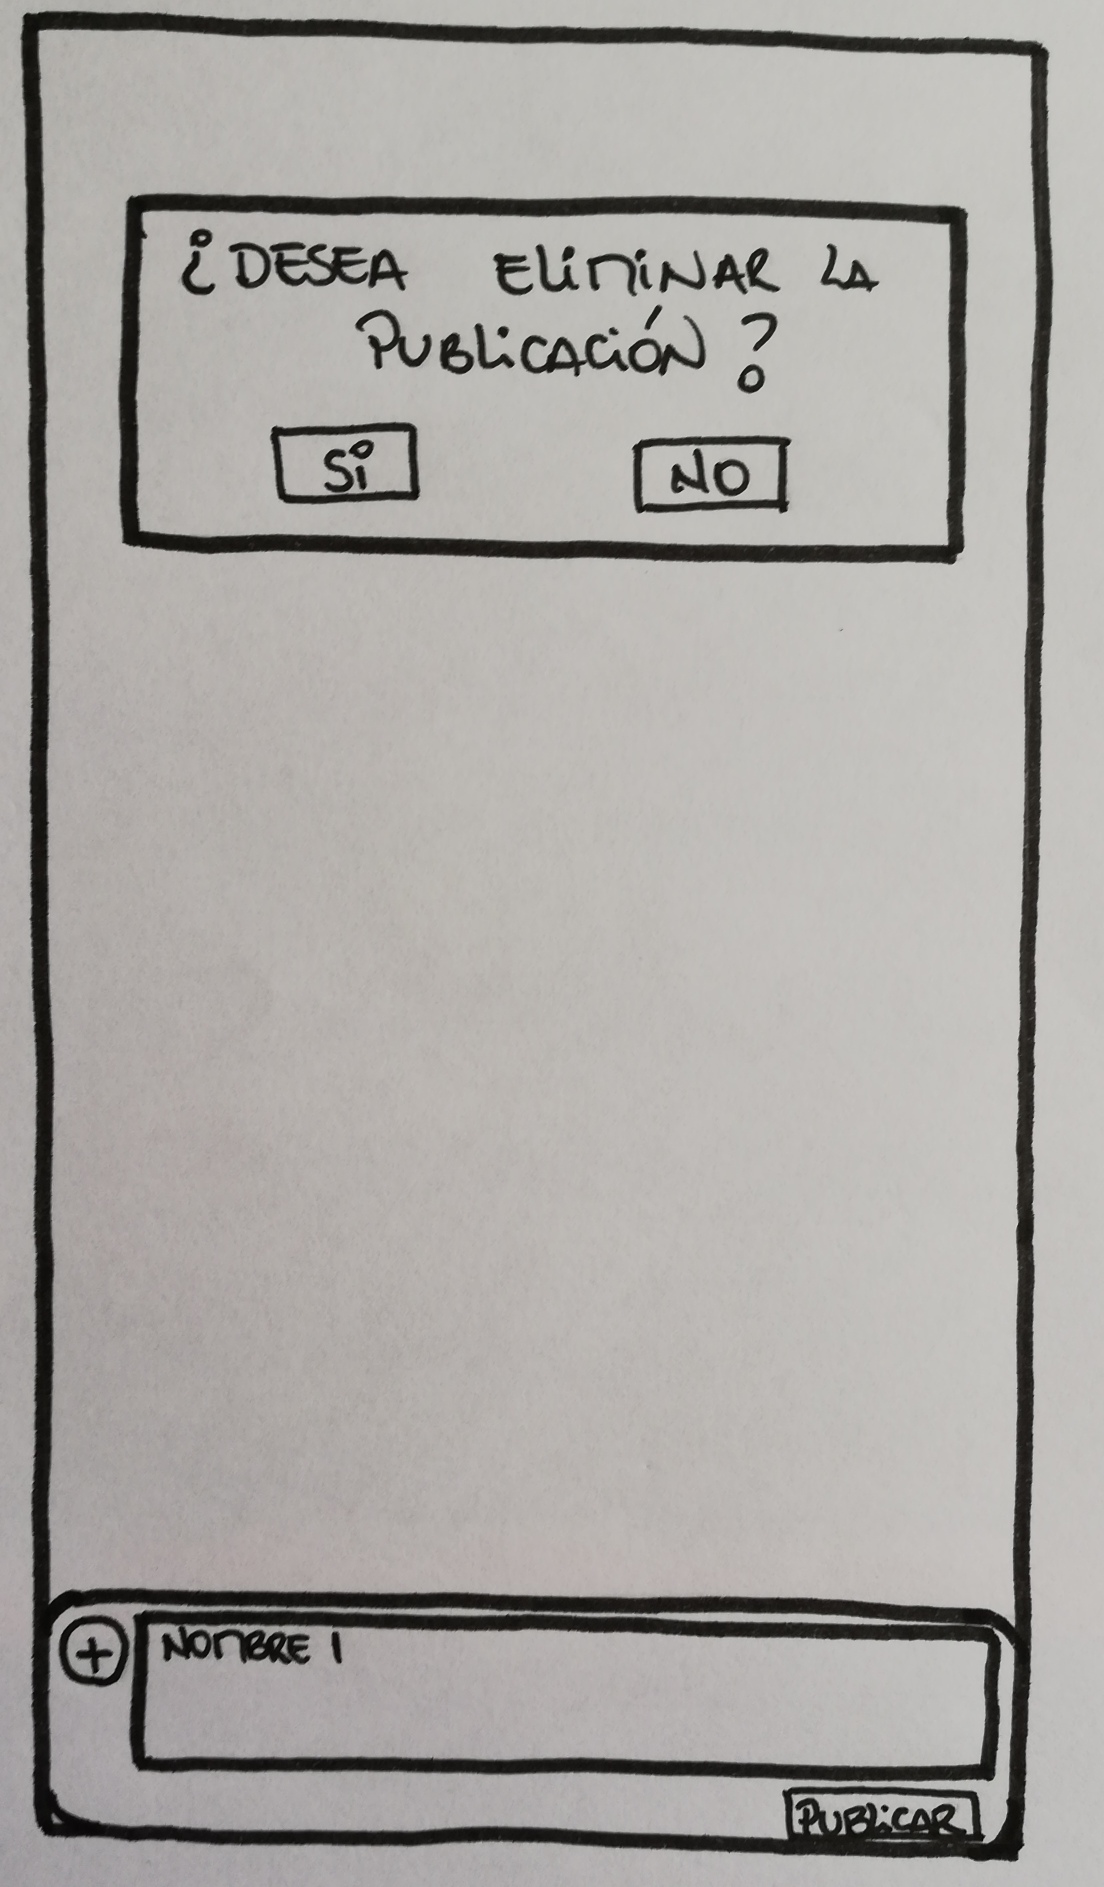 ¿DESEA ELIMINAR LA
PUBLICACIÓN?
Si
NO
+
NOMBRE 1
PUBLICAR